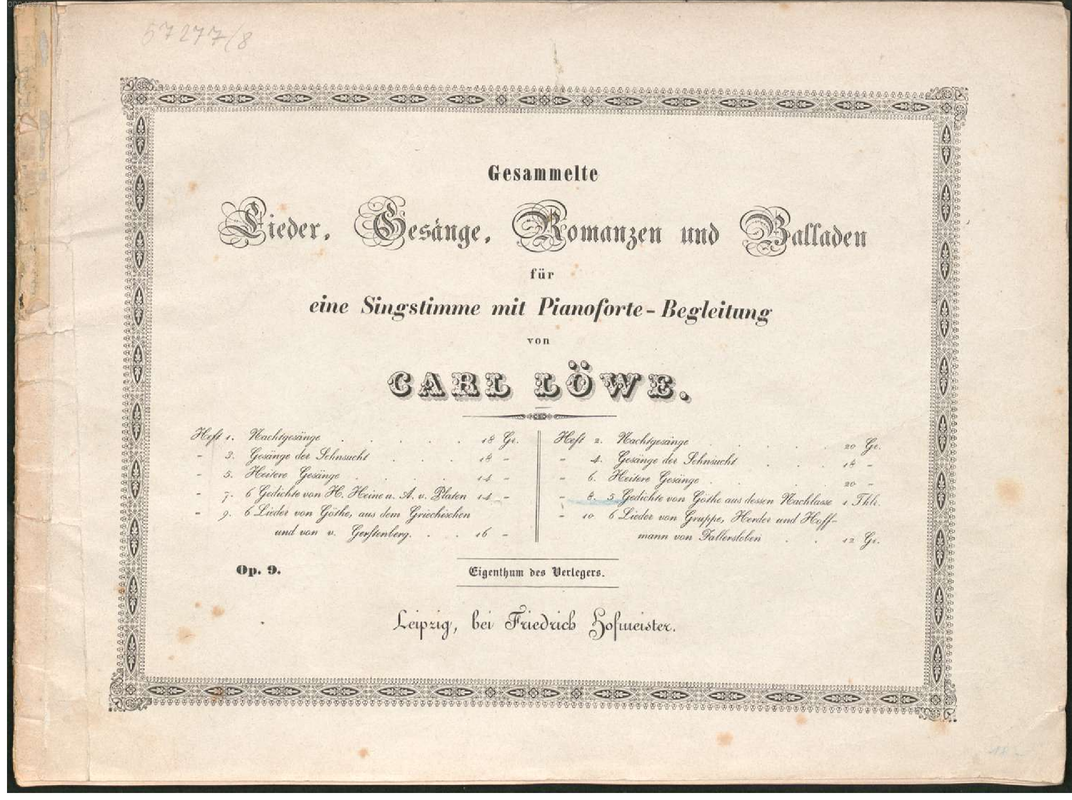 57277/8
Gesammelte
Lieder, Gesänge, Romanzen und Balladen
für
eine Singstimme mit Pianoforte-Begleitung
von
CARL LÖWE.
Heft 1. Nachtgesänge . . . . . 18 Gr.
- 3. Gesänge der Sehnsucht . . . . 18 -
- 5. Heitere Gesänge . . . . . 14 -
- 7. 6 Gedichte von H. Heine u. A. v. Platen 14 -
- 9. 6 Lieder von Göthe, aus dem Griechischen
und von v. Gerstenberg. . . . 16 -
Heft 2. Nachtgesänge . . . . . 20 Gr.
- 4. Gesänge der Sehnsucht . . . . 18 -
- 6. Heitere Gesänge . . . . . 20 -
- 8. 5 Gedichte von Göthe aus dessen Nachlasse 1 Thlr.
- 10. 6 Lieder von Gruppe, Herder und Hoff-
mann von Fallersleben . . . 12 Gr.
Op. 9.
Eigenthum des Verlegers.
Leipzig, bei Friedrich Hofmeister.